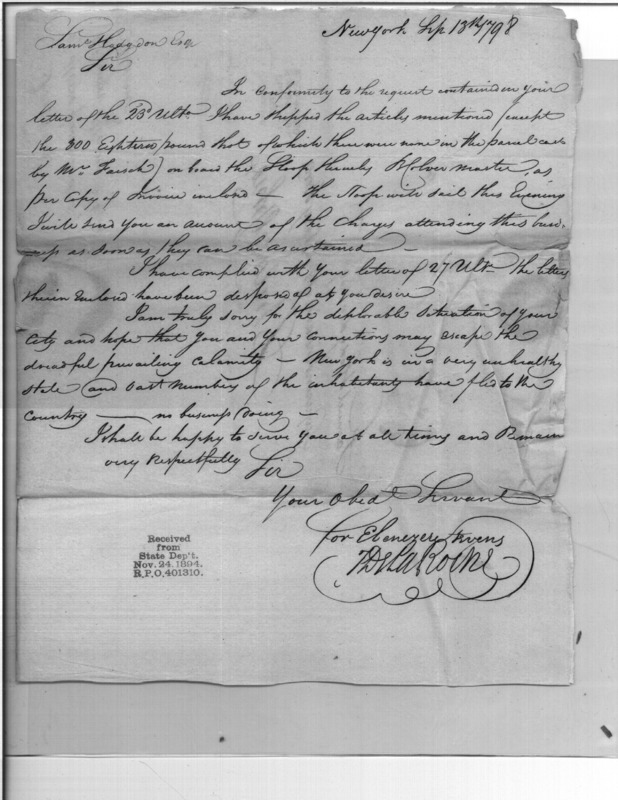 New York Sep 13th 1798
Saml Hodgdon Esqr
Sir
In conformity to the request contained in your
letter of the 23d Ulto I have shipped the articles mentioned (except
the 300 Eighteen pound shot of which there were none in the parcel cast
by Mr Faesch) on board the Sloop master, as
per Copy of Invoice inclosd — the Sloop will sail this Evening
I will send you an account of the Charges attending this busi-
ness as soon as they can be ascertained —
I have complied with Your letter of 27 Ulto the letters
therein Enclosd have been disposed of as you desire
I am truly sorry for the deplorable Situation of your
City and hope that You and Your connections may escape the
dreadful prevailing calamity — New York is in a very unhealthy
state (and vast numbers of the inhabitants have fled to the
Country — no business doing —
I shall be happy to serve You at all times and Remain
very Respectfully Sir
Your Obedt Servant
for Ebenezer Stevens
Received
from
State Dep't.
Nov. 24. 1894.
R.P.O. 401310.